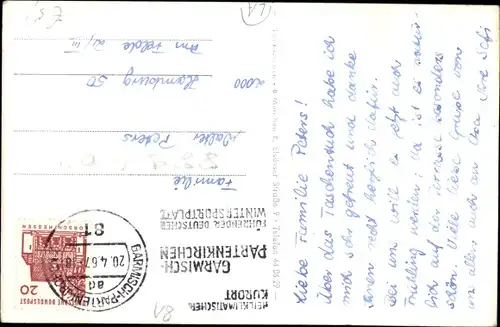 Liebe Familie Peters!
Über das Taschentuch habe ich
mich sehr gefreut und danke
Ihnen recht herzlich dafür.
Bei uns will es jetzt auch
Frühling werden; da ist es natür-
lich auf der Terrasse besonders
schön. Viele liebe Grüsse von
uns allen auch an Lisa Ihre Sefi
HEILKLIMATISCHER
KURORT
GARMISCH-
PARTENKIRCHEN
FÜHRENDER DEUTSCHER
WINTERSPORTPLATZ
81
GARMISCH-PARTENKIRCHEN
20.4.67
ad
20
DEUTSCHE BUNDESPOST
LORSCH/HESSEN
Familie
Walter Peters
2000 Hamburg 50
Am Felde 2/III